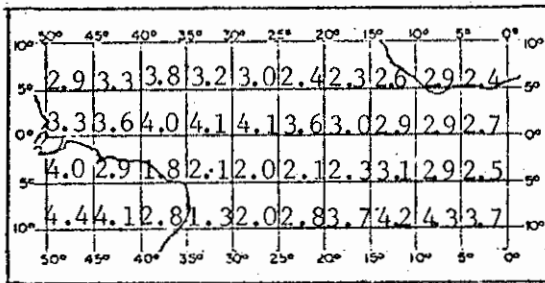 50° 45° 40° 35° 30° 25° 20° 15° 10° 5° 0°
10° 10°
2.9 3.3 3.8 3.2 3.0 2.4 2.3 2.6 2.9 2.4
5° 5°
3.3 3.6 4.0 4.1 4.1 3.6 3.0 2.9 2.9 2.7
0° 0°
4.0 2.9 1.8 2.1 2.0 2.1 2.3 3.1 2.9 2.5
5° 5°
4.4 4.1 2.8 1.3 2.0 2.8 3.7 4.2 4.3 3.7
10° 10°
50° 45° 40° 35° 30° 25° 20° 15° 10° 5° 0°